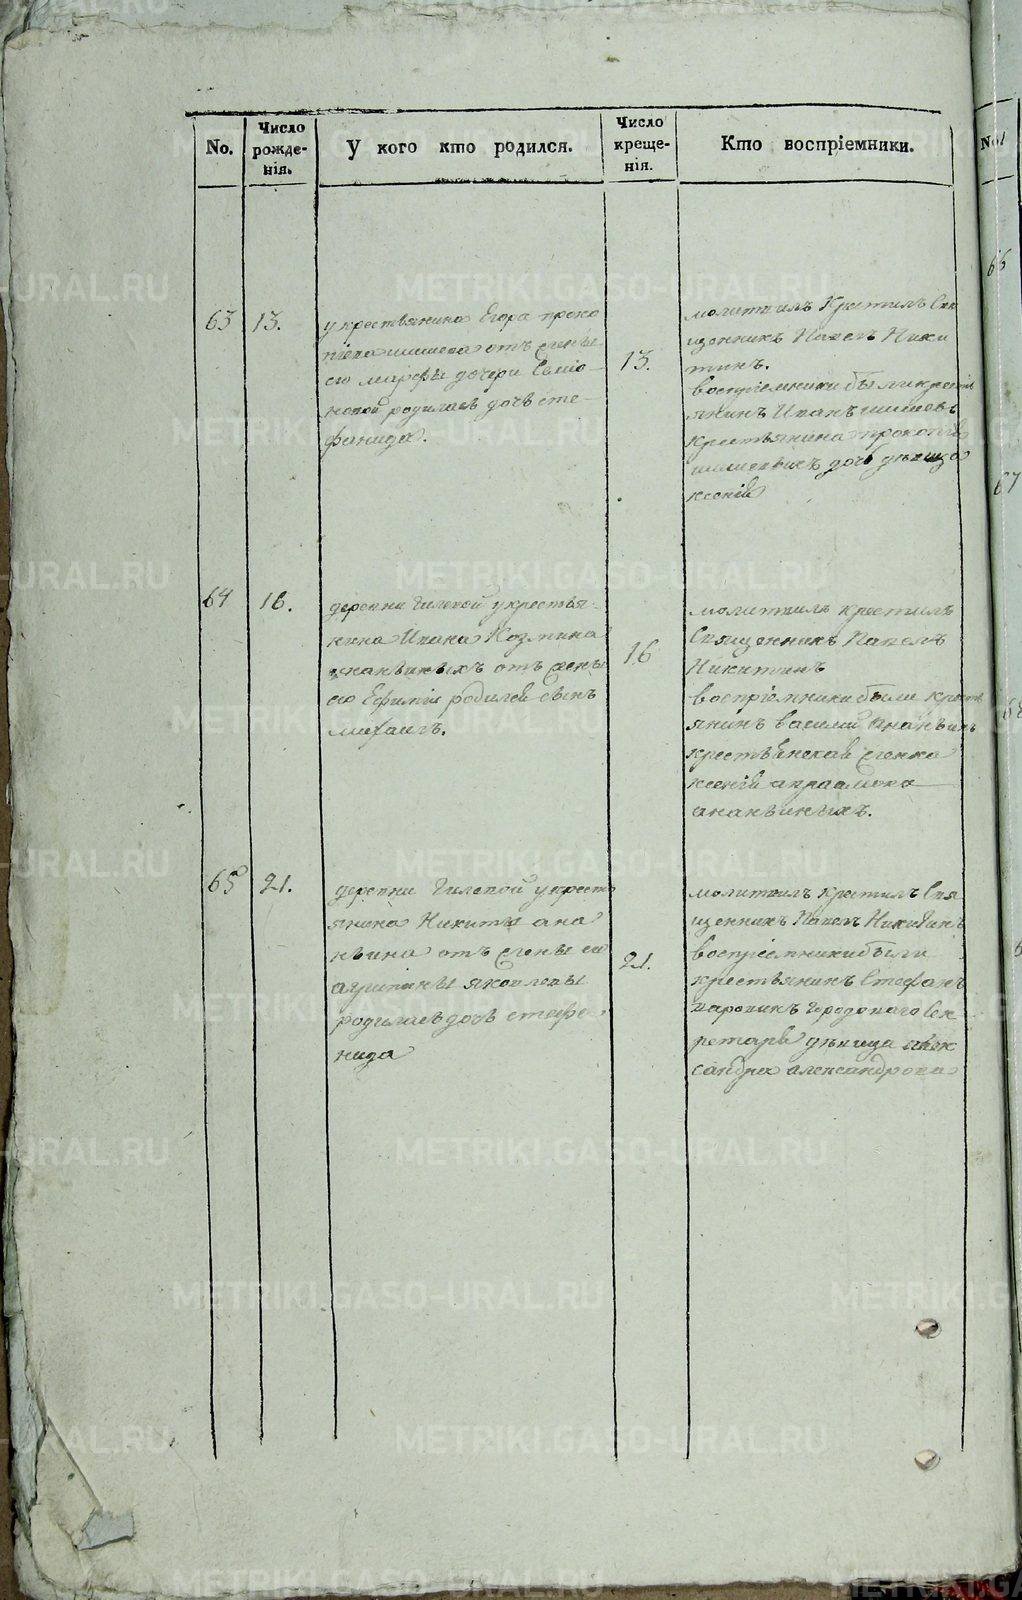 No.
Число
рожде-
нія.
У кого кто родился.
Число
креще-
нія.
Кто воспріемники.
63
13.
у крестьянина Егора проко
піева шишева отъ жены
его марѳы дочери Симіо-
новой родилась дочь сте-
фанида.
13.
молитвилъ Крестилъ Свя
щенникъ Павелъ Ники
тинъ.
воспріемники были крестья
янинъ Иванъ шишевъ
крестьянина прокопія
дочь дѣвица
ксенія
64
16.
деревни Гилевой у крестья-
нина Ивана Козмина
ананьиныхъ отъ жены
его Ефиміи родился сынъ
михаилъ.
16
молитвилъ крестилъ
Священникъ Павелъ
Никитинъ
воспріемники были крестья
янинъ василий Ананьинъ
крестьянская женка
ксенія авраамова
ананьиныхъ.
65
21.
деревни Гилевой у кресть
янина Никиты ана
ньина отъ жены ево
агрипины яковлевы
родилась дочь стефа
нида
21.
молитвилъ крестилъ Свя
щенникъ Павелъ Никитинъ
воспріемники были
крестьянинъ Стефанъ
Городоваго Сек
ретаря дѣвица алек
сандра александрова
No
66
67
METRIKI.GASO-URAL.RU